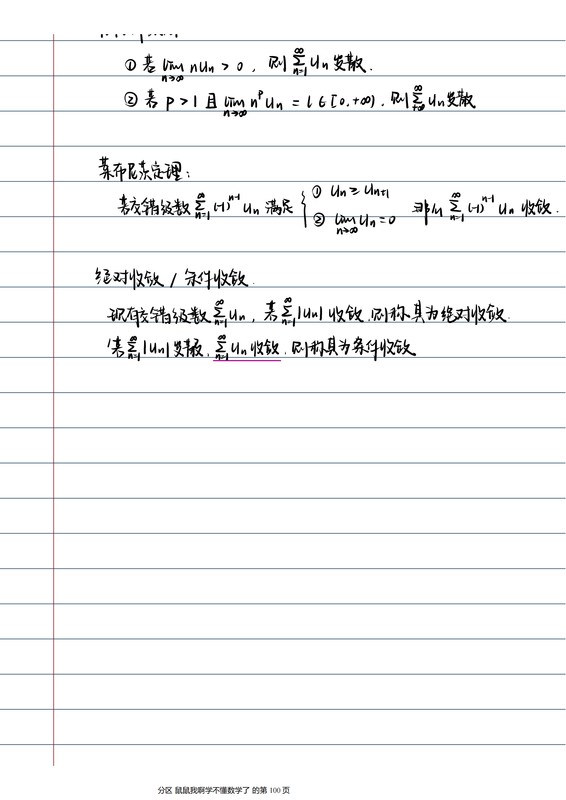 ① 若 lim_{n→∞} nUn > 0, 则 ∑_{n=1}^{∞} Un 发散.
② 若 p > 1 且 lim_{n→∞} n^p Un = l ∈ [0, +∞), 则 ∑_{+∞}^{∞} Un 发散
莱布尼茨定理:
若交错级数 ∑_{n=1}^{∞} (-1)^{n-1} Un 满足 { ① Un ≥ Un+1 ② lim_{n→∞} Un = 0 那么 ∑_{n=1}^{∞} (-1)^{n-1} Un 收敛.
绝对收敛 / 条件收敛.
现有交错级数 ∑_{n=1}^{∞} Un, 若 ∑_{n=1}^{∞} |Un| 收敛, 则称其为绝对收敛.
若 ∑_{n=1}^{∞} |Un| 发散, ∑_{n=1}^{∞} Un 收敛, 则称其为条件收敛
分区 鼠鼠我啊学不懂数学了 的第 100 页